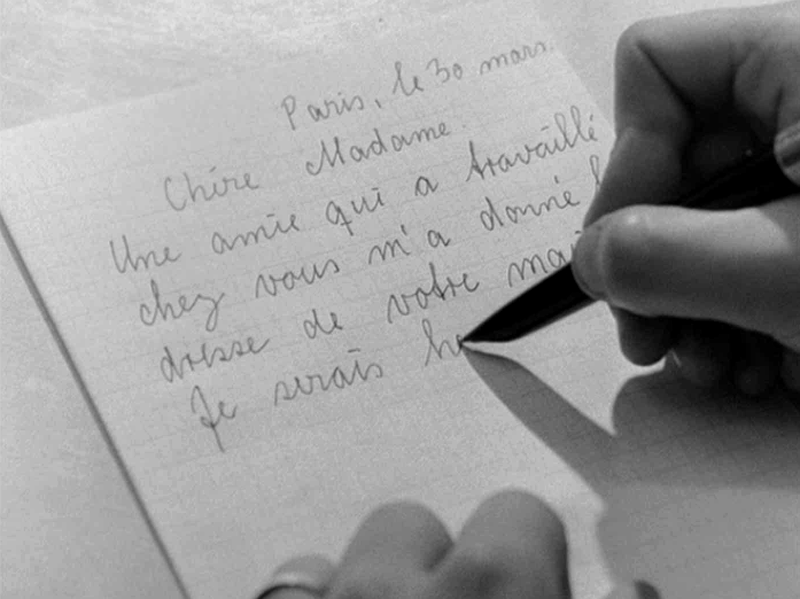 Paris, le 30 mars.
Chère Madame.
Une amie qui a travaillé
chez vous m'a donné l
dresse de votre mai
Je serais he